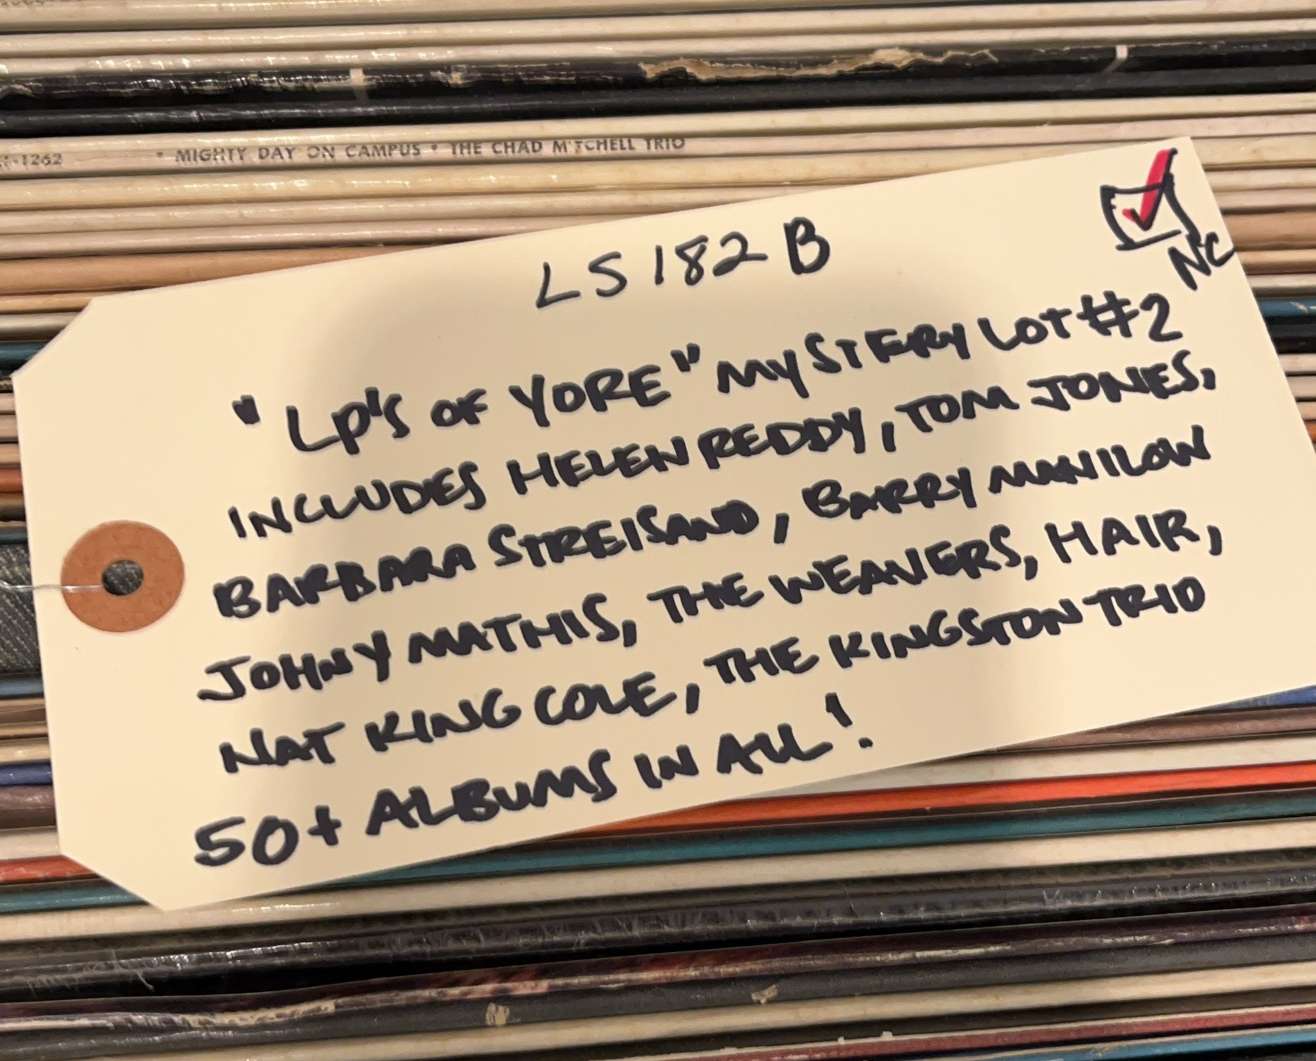 -1262 • MIGHTY DAY ON CAMPUS • THE CHAD MITCHELL TRIO
LS 182 B
NC
"LP'S OF YORE" MYSTERY LOT #2
INCLUDES HELEN REDDY, TOM JONES,
BARBARA STREISAND, BARRY MANILOW
JOHNY MATHIS, THE WEAVERS, HAIR,
NAT KING COLE, THE KINGSTON TRIO
50+ ALBUMS IN ALL!